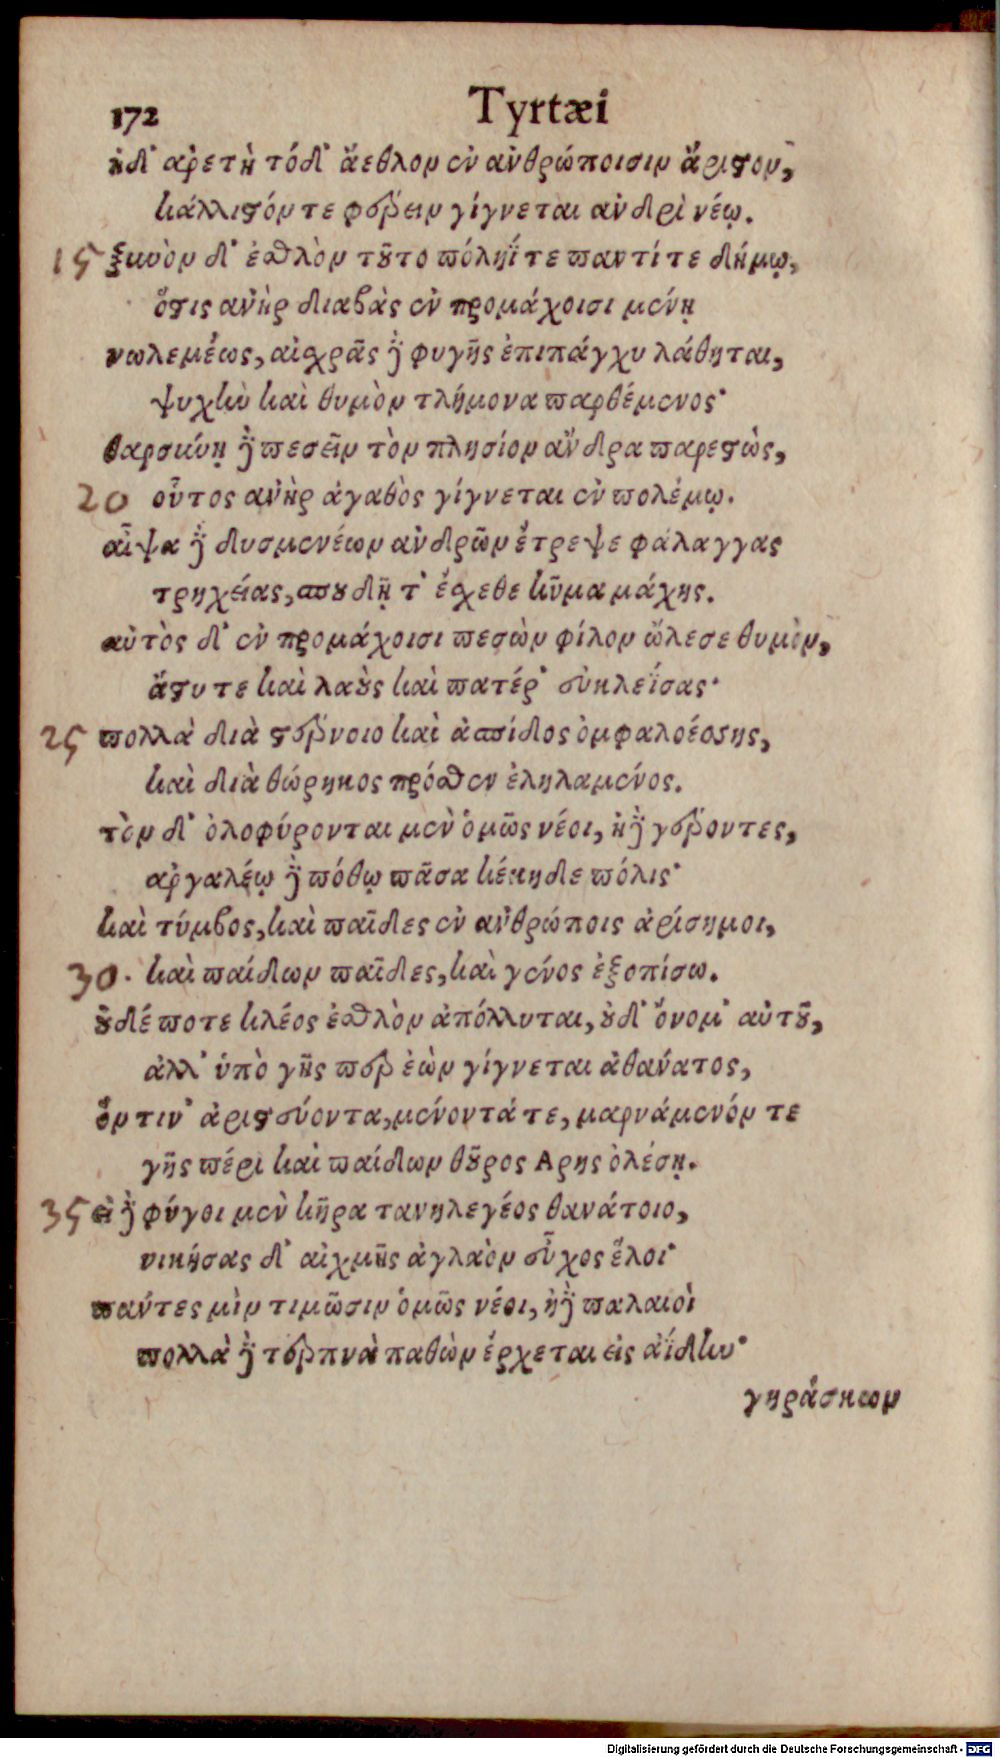 172 Tyrtæi
ἡδ' ἀρετὴ τόδ' ἄεθλον ἐν ἀνθρώποισιν ἄριστον,
κάλλιστόν τε φέρειν γίγνεται ἀνδρὶ νέῳ.
15 ξυνὸν δ' ἐσθλὸν τοῦτο πόληΐ τε παντί τε δήμῳ,
ὅστις ἀνὴρ διαβὰς ἐν προμάχοισι μένῃ
νωλεμέως, αἰσχρᾶς δὲ φυγῆς ἐπιπάγχυ λάθηται,
ψυχὴν καὶ θυμὸν τλήμονα παρθέμενος·
θαρσύνῃ δὲ πεσεῖν τὸν πλησίον ἄνδρα παρεστὼς,
20 οὗτος ἀνὴρ ἀγαθὸς γίγνεται ἐν πολέμῳ.
αἶψα δὲ δυσμενέων ἀνδρῶν ἔτρεψε φάλαγγας
τρηχείας, σπουδῇ τ' ἔσχεθε κῦμα μάχης.
αὐτὸς δ' ἐν προμάχοισι πεσὼν φίλον ὤλεσε θυμὸν,
ἄστυ τε καὶ λαοὺς καὶ πατέρ' εὐκλεΐσας·
25 πολλὰ διὰ στέρνοιο καὶ ἀσπίδος ὀμφαλοέσσης,
καὶ διὰ θώρηκος πρόσθεν ἐληλαμένος.
τὸν δ' ὀλοφύρονται μὲν ὁμῶς νέοι, ἠδὲ γέροντες,
ἀργαλέῳ δὲ πόθῳ πᾶσα κέκηδε πόλις·
καὶ τύμβος, καὶ παῖδες ἐν ἀνθρώποις ἀρίσημοι,
30. καὶ παίδων παῖδες, καὶ γένος ἐξοπίσω.
οὐδέ ποτε κλέος ἐσθλὸν ἀπόλλυται, οὐδ' ὄνομ' αὐτοῦ,
ἀλλ' ὑπὸ γῆς περ ἐὼν γίγνεται ἀθάνατος,
ὅν τιν' ἀριστεύοντα, μένοντά τε, μαρνάμενόν τε
γῆς πέρι καὶ παίδων θοῦρος Ἄρης ὀλέσῃ.
35 εἰ δὲ φύγοι μὲν κῆρα τανηλεγέος θανάτοιο,
νικήσας δ' αἰχμῆς ἀγλαὸν εὖχος ἕλοι·
πάντες μὶν τιμῶσιν ὁμῶς νέοι, ἠδὲ παλαιοὶ
πολλὰ δὲ τερπνὰ παθὼν ἔρχεται εἰς ἀΐδην·
γηράσκων
Digitalisierung gefördert durch die Deutsche Forschungsgemeinschaft - DFG